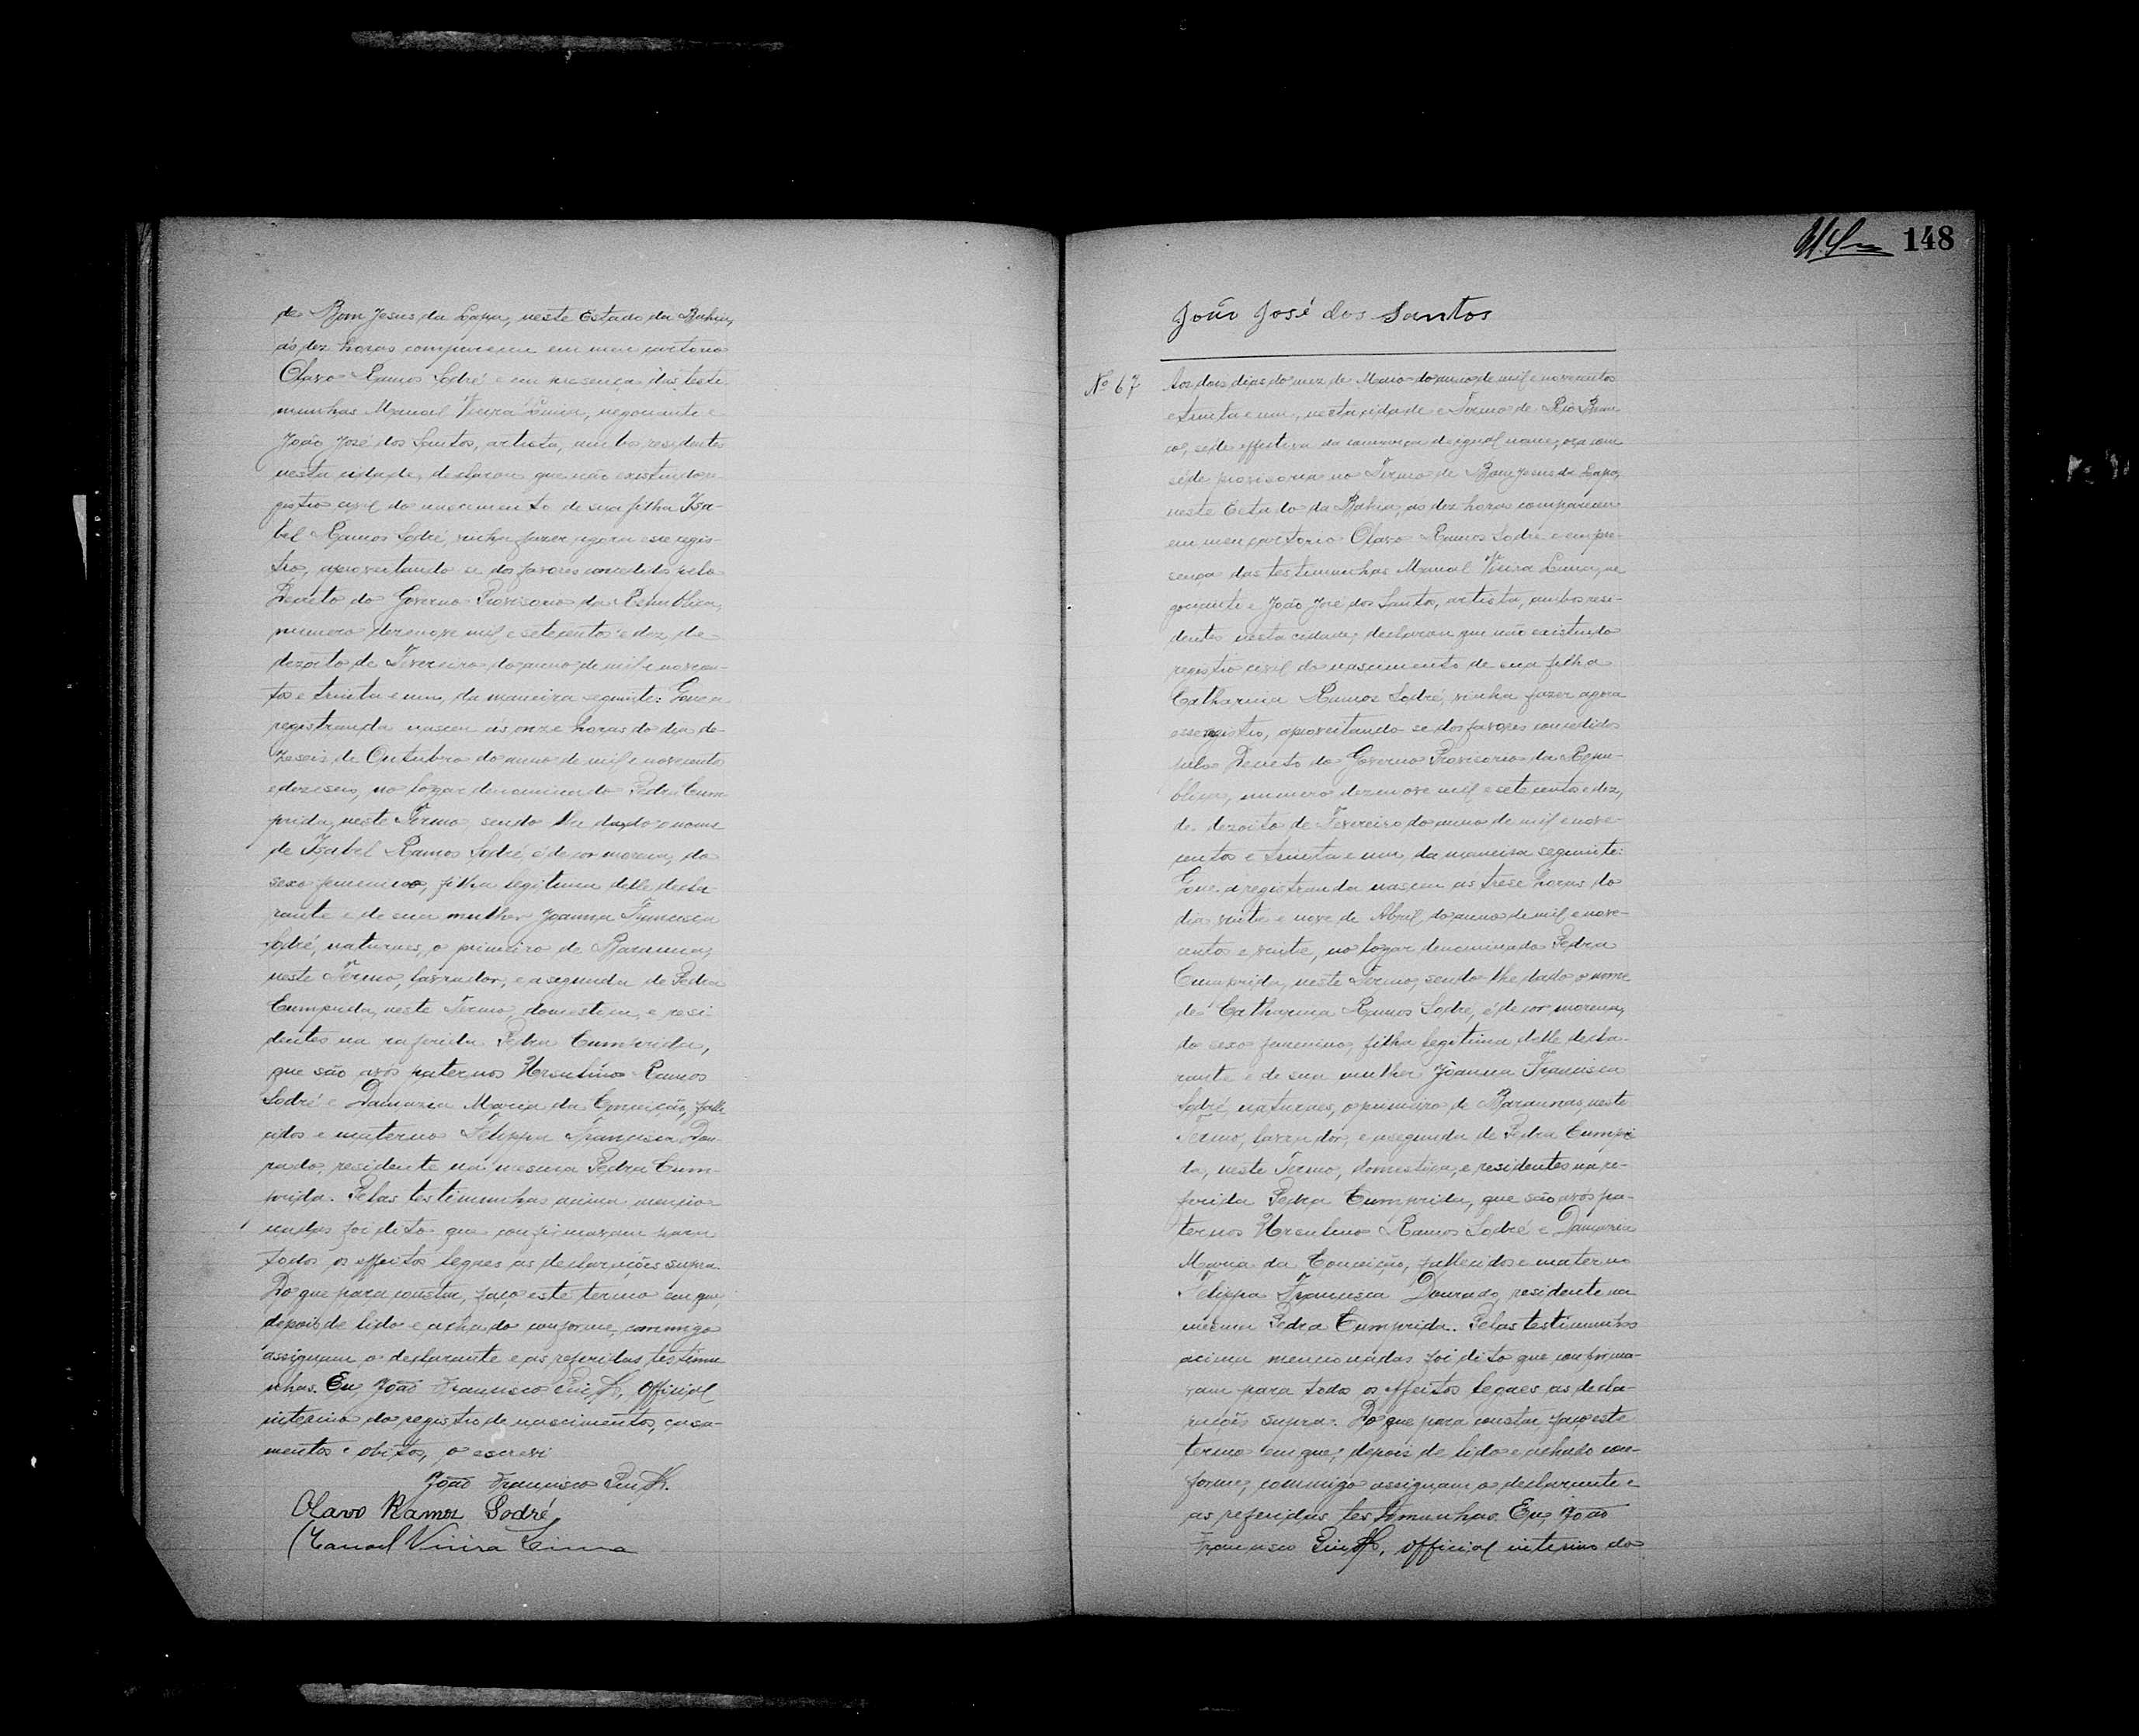 de Bom Jesus da Lapa, neste Estado da Bahia,
ás dez horas compareceu em meu cartorio
Olavo Ramos Sodré e em presença das teste
munhas Manoel Vieira Lima, negociante e
João José dos Santos, artista, ambos residentes
nesta cidade, declarou que não existindo re
gistro civil do nascimento de sua filha Isa-
bel Ramos Sodré, vinha fazer agora esse regis-
tro, aproveitando se dos favores concedidos pelo
Decreto do Governo Provisorio da Republica,
numero dezenove mil e setecentos e dez, de
dezoito de Fevereiro do anno de mil e novecen-
tos e trinta e um, da maneira seguinte: Que a
registranda nasceu ás onze horas do dia de-
zeseis de Outubro do anno de mil e novecentos
e dezeseis, no logar denominado Pedra Cum
prida, neste Termo, sendo lhe dado o nome
de Isabel Ramos Sodré, é de cor morena, do
sexo femenino, filha legitima delle decla-
rante e de sua mulher Joanna Francisca
Sodré, naturaes, o primeiro de Baraunas,
neste Termo, lavrador, e a segunda de Pedra
Cumprida, neste Termo, domestica, e resi
dentes na referida Pedra Cumprida,
que são avós paternos Hersulino Ramos
Sodré e Damazia Maria da Conceição, falle
cidos e materno Felippa Francisca Dou-
rado, residente na mesma Pedra Cum-
prida. Pelas testimunhas acima mencio
nadas foi dito que confirmavam para
todos os effeitos legaes as declarações supra.
Do que para constar, faço este termo em que,
depois de lido e achado conforme, commigo
assignam o declarante e as referidas testimu
nhas. Eu, João Francisco, Official
interino do registro de nascimentos, casa-
mentos e obitos, o escrevi
João Francisco
Olavo Ramos Sodré
Manoel Vieira Lima
148
João José dos Santos
No 67 Aos dois dias do mez de Maio do anno de mil e novecentos
e trinta e um, nesta cidade e Termo de Rio Bran
co, sede effectiva da comarca de igual nome, ora com
séde provisoria no Termo de Bom Jesus da Lapa,
neste Estado da Bahia, ás dez horas compareceu
em meu cartorio Olavo Ramos Sodré e em pre-
sença das testimunhas Manoel Vieira Lima, ne
gociante e João José dos Santos, artista, ambos resi-
dentes nesta cidade, declarou que não existindo
registro civil do nascimento de sua filha
Catharina Ramos Sodré, vinha fazer agora
esse registro, aproveitando se dos favores concedidos
pelo Decreto do Governo Provisorio da Repu-
blica, numero dezenove mil e setecentos e dez,
de dezoito de Fevereiro do anno de mil e nove-
centos e trinta e um da maneira seguinte:
Que a registranda nasceu as trese horas do
dia vinte e nove de Abril do anno de mil e nove-
centos e vinte, no logar denominado Pedra
Cumprida, neste Termo, sendo lhe dado o nome
de Catharina Ramos Sodré, é de cor morena,
do sexo femenino, filha legitima delle decla-
rante e de sua mulher Joanna Francisca
Sodré, naturaes, o primeiro de Baraunas, neste
Termo, lavrador, e a segunda de Pedra Cumpri
da, neste Termo, domestica, e residentes na re-
ferida Pedra Cumprida, que são avós pa-
ternos Hersulino Ramos Sodré e Damazia
Maria da Conceição, fallecidos e materno
Felippa Francisca Dourado, residente na
mesma Pedra Cumprida. Pelas testimunhas
acima mencionadas foi dito que confirma-
vam para todos os effeitos legaes as decla-
rações supra. Do que para constar faço este
termo em que, depois de lido e achado con-
forme, commigo assignam o declarante e
as referidas testimunhas. Eu, João
Francisco, official interino do